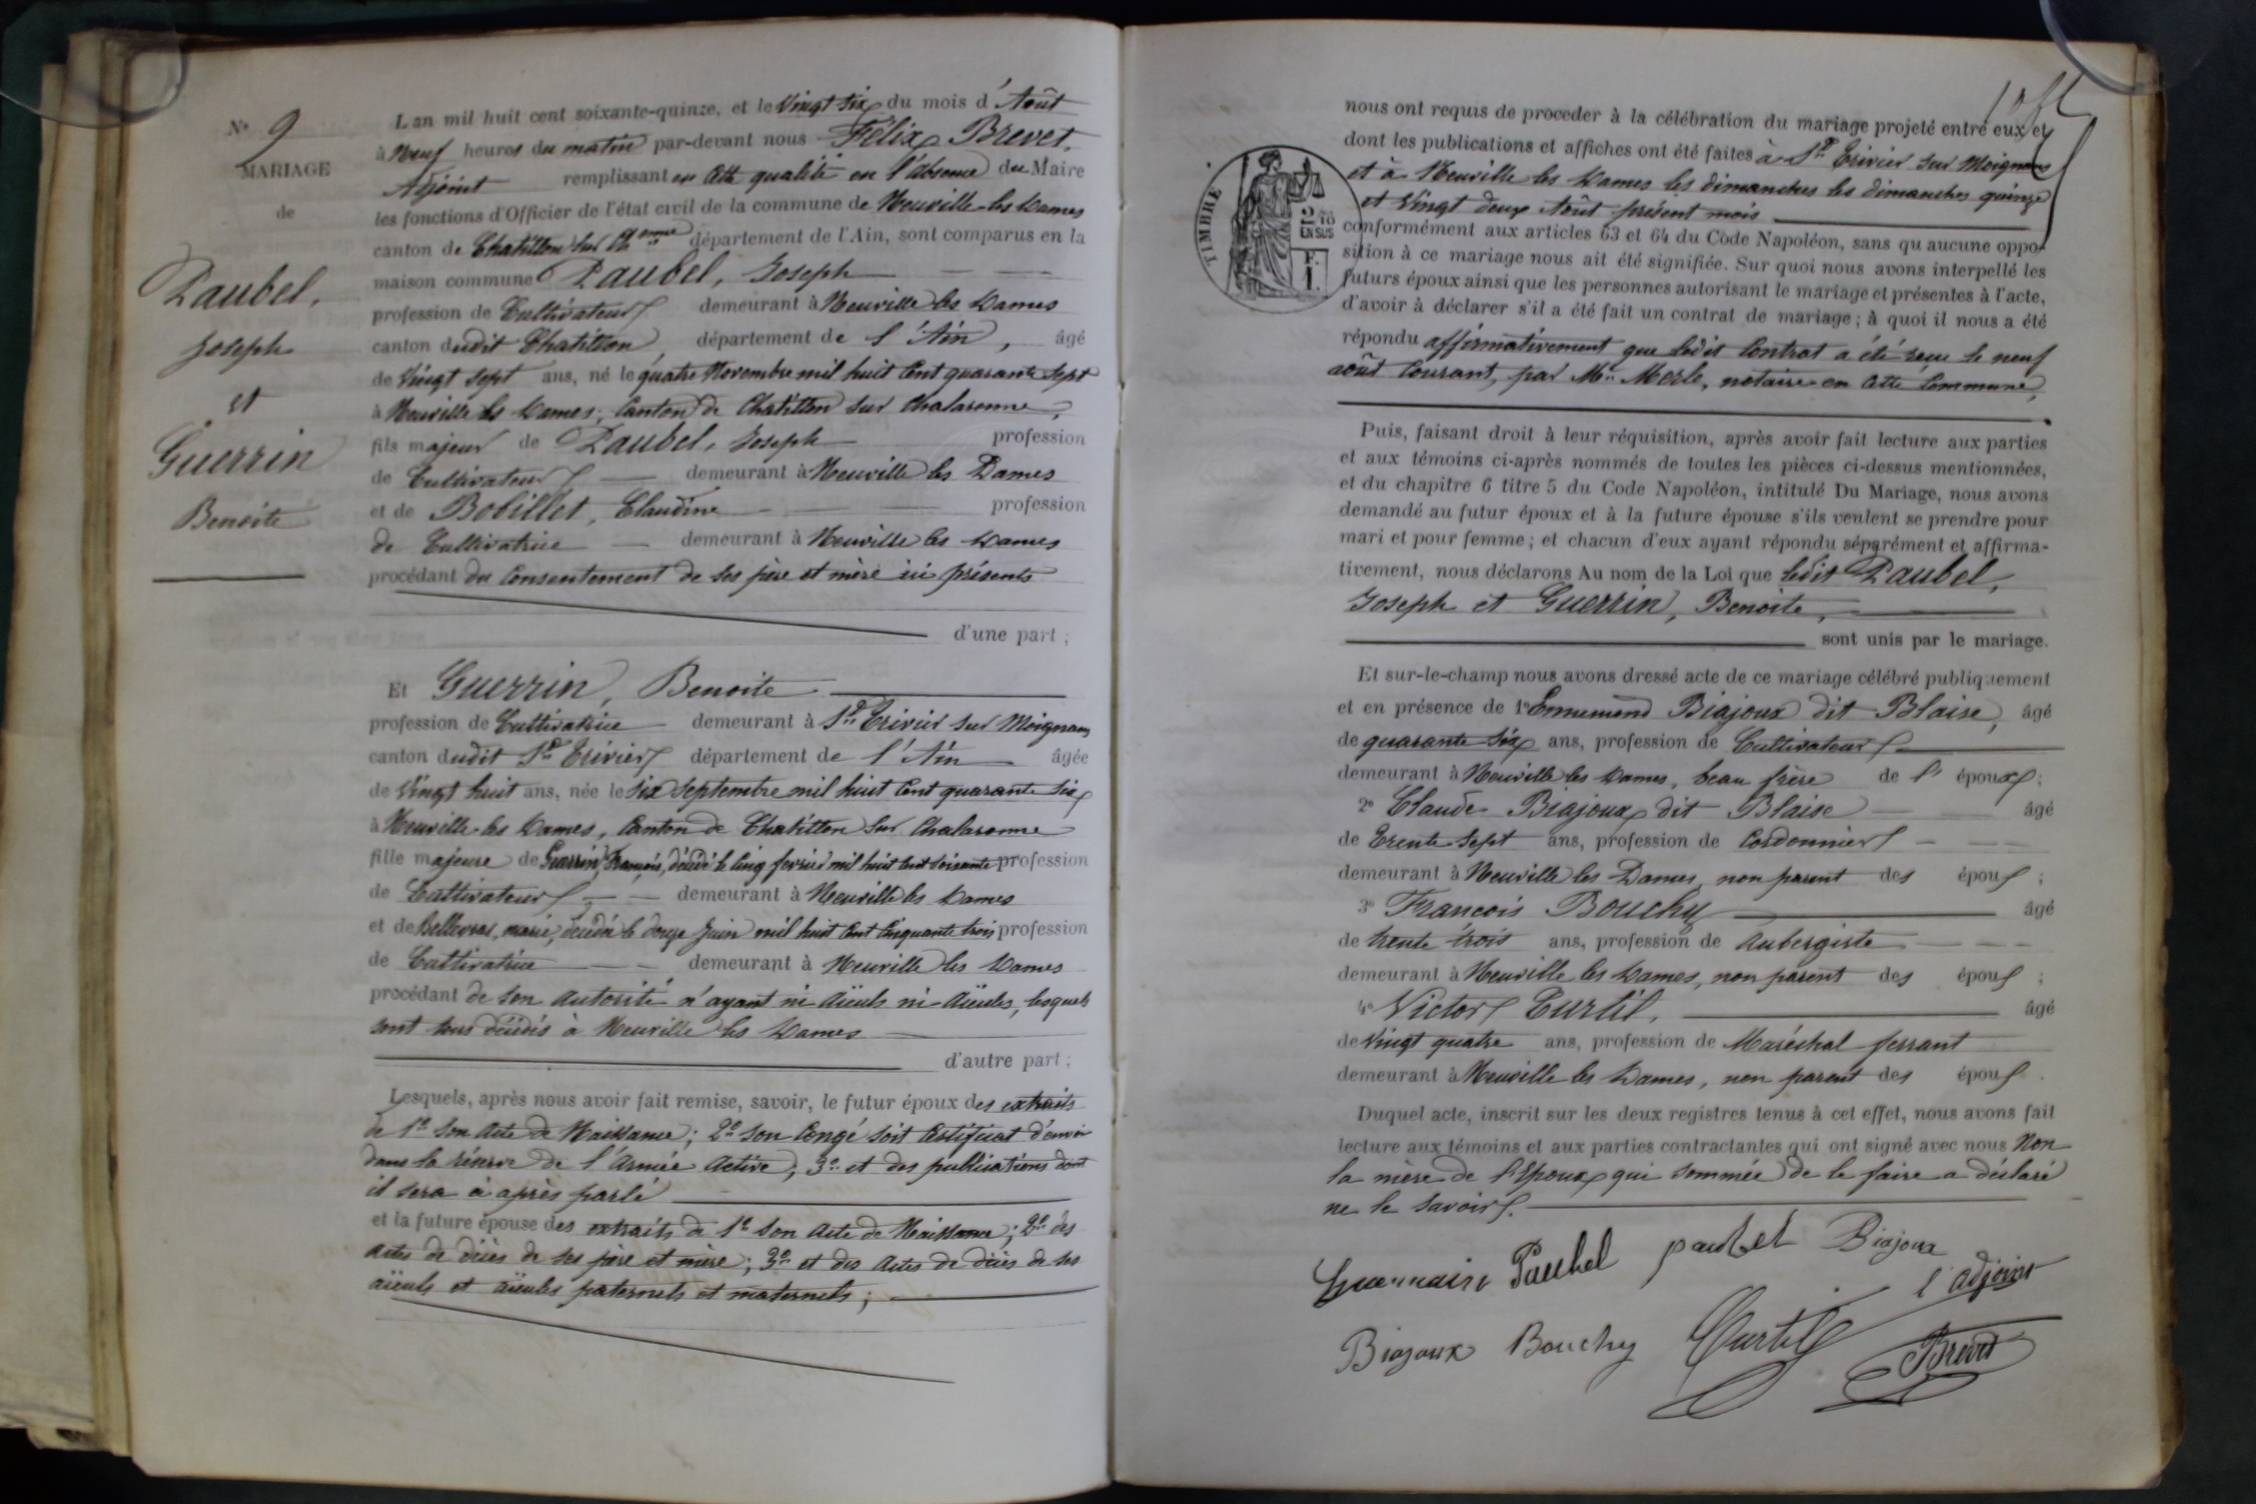 N° 9
MARIAGE
de
Paubel,
Joseph
et
Guerrin
Benoite
L'an mil huit cent soixante-quinze, et le Vingt six du mois d'Août
à Neuf heures du matin par-devant nous Félix Brevet,
Adjoint remplissant en cette qualité en l'absence du Maire
les fonctions d'Officier de l'état civil de la commune de Neuville les Dames
canton de Chatillon sur Ch.onne département de l'Ain, sont comparus en la
maison commune Paubel, Joseph
profession de Cultivateur demeurant à Neuville les Dames
canton dudit Chatillon, département de l'Ain, âgé
de Vingt sept ans, né le quatre Novembre mil huit Cent quarante sept
à Neuville les Dames, Canton de Chatillon sur Chalaronne,
fils majeur de Paubel, Joseph profession
de Cultivateur demeurant à Neuville les Dames
et de Bobillet, Claudine profession
de Cultivatrice demeurant à Neuville les Dames
procédant du Consentement de ses père et mère ici présents
d'une part ;
Et Guerrin, Benoite
profession de Cultivatrice demeurant à St Trivier sur Moignans
canton dudit St Trivier département de l'Ain âgée
de Vingt huit ans, née le six Septembre mil huit Cent quarante six
à Neuville les Dames, Canton de Chatillon sur Chalaronne
fille majeure de Guerrin, François, décédé le cinq fevrier mil huit cent soixante profession
de Cultivateur demeurant à Neuville les Dames
et de Bellevras, marie, décédée le douze Juin mil huit Cent Cinquante trois profession
de Cultivatrice demeurant à Neuville les Dames
procédant de son autorité n'ayant ni Aïeuls ni Aïeules, lesquels
sont tous décédés à Neuville les Dames
d'autre part ;
Lesquels, après nous avoir fait remise, savoir, le futur époux des extraits
de 1° son Acte de Naissance ; 2° son Congé soit Certificat d'envoi
dans la réserve de l'Armée Active ; 3° et des publications dont
il sera ci après parlé
et la future épouse des extraits de 1° son Acte de Naissance ; 2° des
actes de décès de ses père et mère ; 3° et des Actes de décès de ses
aïeuls et aïeules paternels et maternels ;
TIMBRE
2/10
EN SUS
F.
1.
nous ont requis de procéder à la célébration du mariage projeté entre eux et
dont les publications et affiches ont été faites à St Trivier sur Moignans
et à Neuville les Dames les dimanches les dimanches quinze
et Vingt deux Août présent mois
conformément aux articles 63 et 64 du Code Napoléon, sans qu'aucune oppo-
sition à ce mariage nous ait été signifiée. Sur quoi nous avons interpellé les
futurs époux ainsi que les personnes autorisant le mariage et présentes à l'acte,
d'avoir à déclarer s'il a été fait un contrat de mariage ; à quoi il nous a été
répondu affirmativement que ledit Contrat a été reçu le neuf
août Courant, par Me Merle, notaire en cette Commune,
Puis, faisant droit à leur réquisition, après avoir fait lecture aux parties
et aux témoins ci-après nommés de toutes les pièces ci-dessus mentionnées,
et du chapitre 6 titre 5 du Code Napoléon, intitulé Du Mariage, nous avons
demandé au futur époux et à la future épouse s'ils veulent se prendre pour
mari et pour femme ; et chacun d'eux ayant répondu séparément et affirma-
tivement, nous déclarons Au nom de la Loi que ledit Paubel,
Joseph et Guerrin, Benoite,
sont unis par le mariage.
Et sur-le-champ nous avons dressé acte de ce mariage célébré publiquement
et en présence de 1° Ennemond Biajoux dit Blaise, âgé
de quarante six ans, profession de Cultivateur
demeurant à Neuville les Dames, beau frère de l' époux ;
2° Claude Biajoux dit Blaise âgé
de Trente sept ans, profession de Cordonnier
demeurant à Neuville les Dames, non parent des époux ;
3° François Bouchy âgé
de trente trois ans, profession de Aubergiste
demeurant à Neuville les Dames, non parent des époux ;
4° Victor Curtil, âgé
de Vingt quatre ans, profession de Maréchal ferrant
demeurant à Neuville les Dames, non parent des époux.
Duquel acte, inscrit sur les deux registres tenus à cet effet, nous avons fait
lecture aux témoins et aux parties contractantes qui ont signé avec nous Non
la mère de l'Epoux qui sommée de le faire a déclaré
ne le savoir.
Paubel paubel Biajoux
l'adjoint
Biajoux Bouchy Curtil Brevet